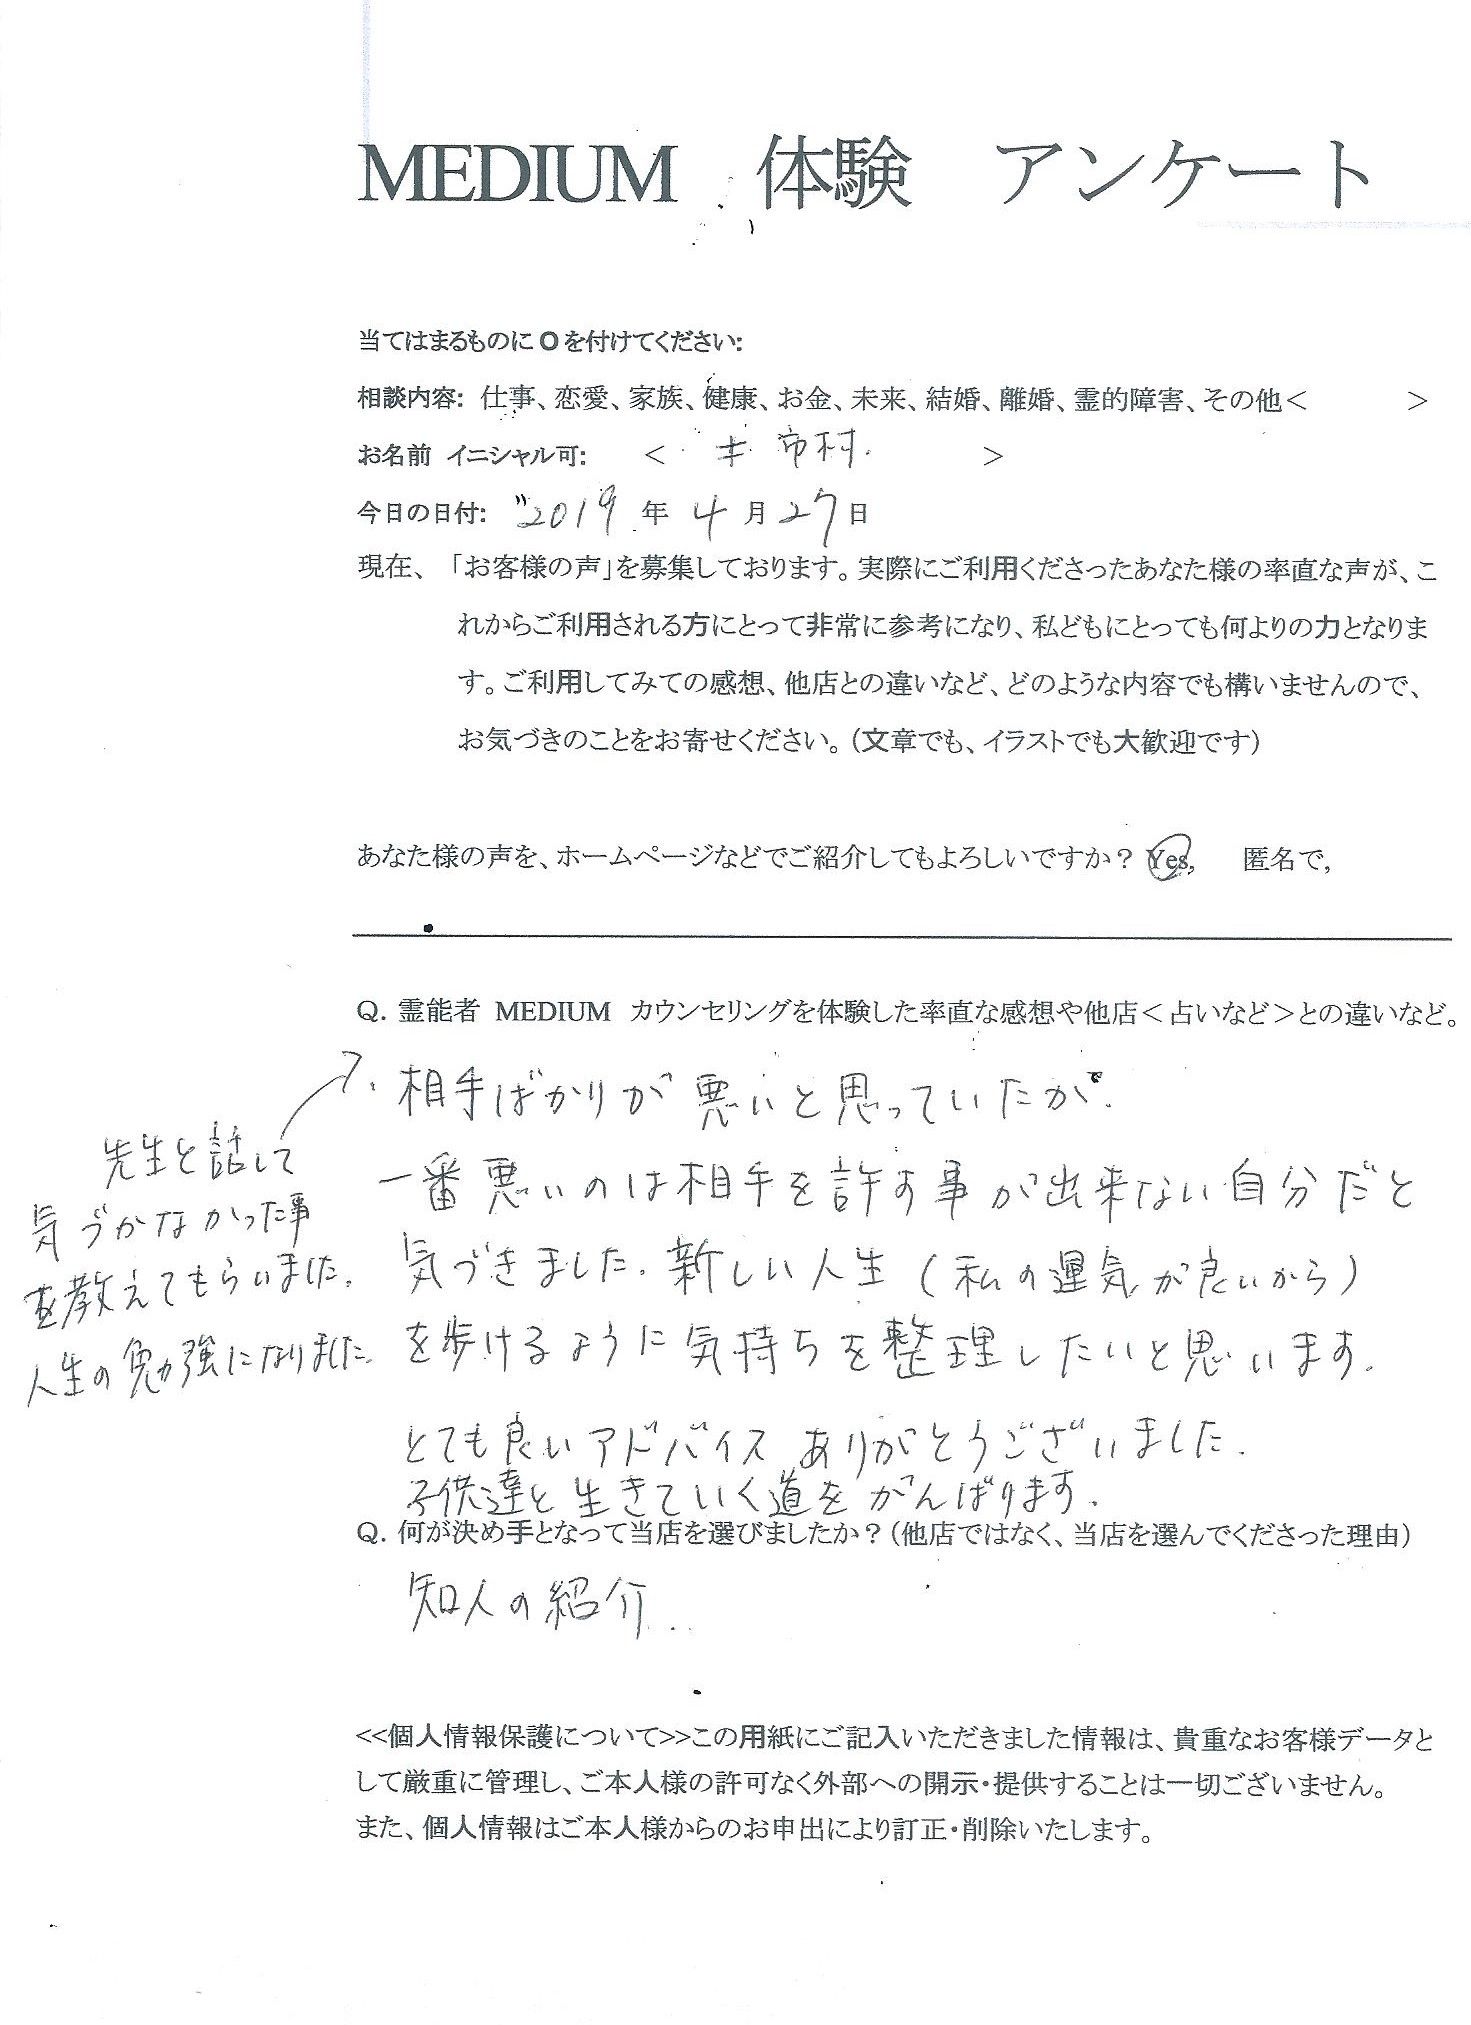 MEDIUM 体験 アンケート
当てはまるものにOを付けてください:
相談内容: 仕事、恋愛、家族、健康、お金、未来、結婚、離婚、霊的障害、その他< >
お名前 イニシャル可: < 市村. >
今日の日付: 2019 年 4 月 27 日
現在、「お客様の声」を募集しております。実際にご利用くださったあなた様の率直な声が、こ
れからご利用される方にとって非常に参考になり、私どもにとっても何よりの力となりま
す。ご利用してみての感想、他店との違いなど、どのような内容でも構いませんので、
お気づきのことをお寄せください。(文章でも、イラストでも大歓迎です)
あなた様の声を、ホームページなどでご紹介してもよろしいですか? Yes, 匿名で,
Q. 霊能者 MEDIUM カウンセリングを体験した率直な感想や他店<占いなど>との違いなど。
先生と話して
気づかなかった事
を教えてもらいました.
人生の勉強になりました.
相手ばかりが悪いと思っていたが.
一番悪いのは相手を許す事が出来ない自分だと
気づきました. 新しい人生 (私の運気が良いから)
を歩けるように気持ちを整理したいと思います.
とても良いアドバイス ありがとうございました.
子供達と生きていく道をがんばります.
Q. 何が決め手となって当店を選びましたか?(他店ではなく、当店を選んでくださった理由)
知人の紹介
<<個人情報保護について>>この用紙にご記入いただきました情報は、貴重なお客様データと
して厳重に管理し、ご本人様の許可なく外部への開示・提供することは一切ございません。
また、個人情報はご本人様からのお申出により訂正・削除いたします。